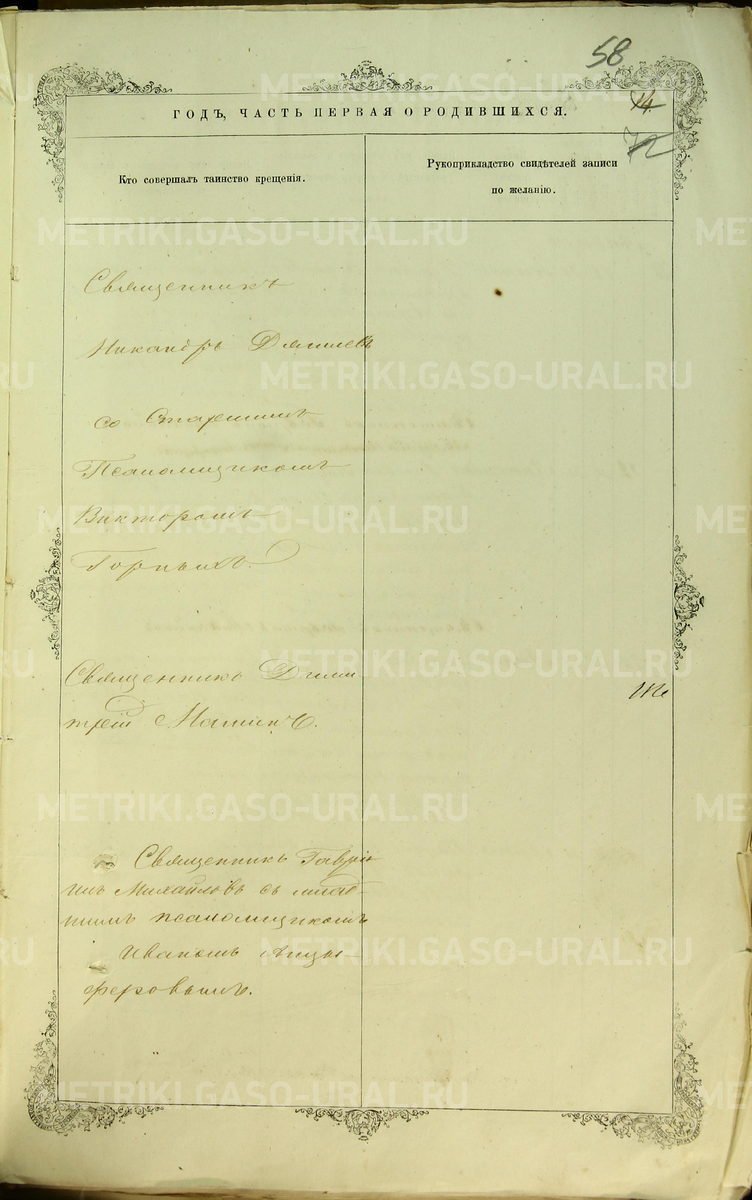 58
14.
72
ГОДЪ, ЧАСТЬ ПЕРВАЯ О РОДИВШИХСЯ.
Кто совершалъ таинство крещенія.
Рукоприкладство свидѣтелей записи
по желанію.
Священникъ
Никаноръ
со Старшимъ
Псаломщикомъ
Викторомъ
Горныхъ.
Священникъ Дими
трій Машинъ.
Священникъ Гаврі
илъ Михайловъ съ млад-
шимъ псаломщикомъ
Иваномъ Анцы-
феровымъ.
METRIKI.GASO-URAL.RU